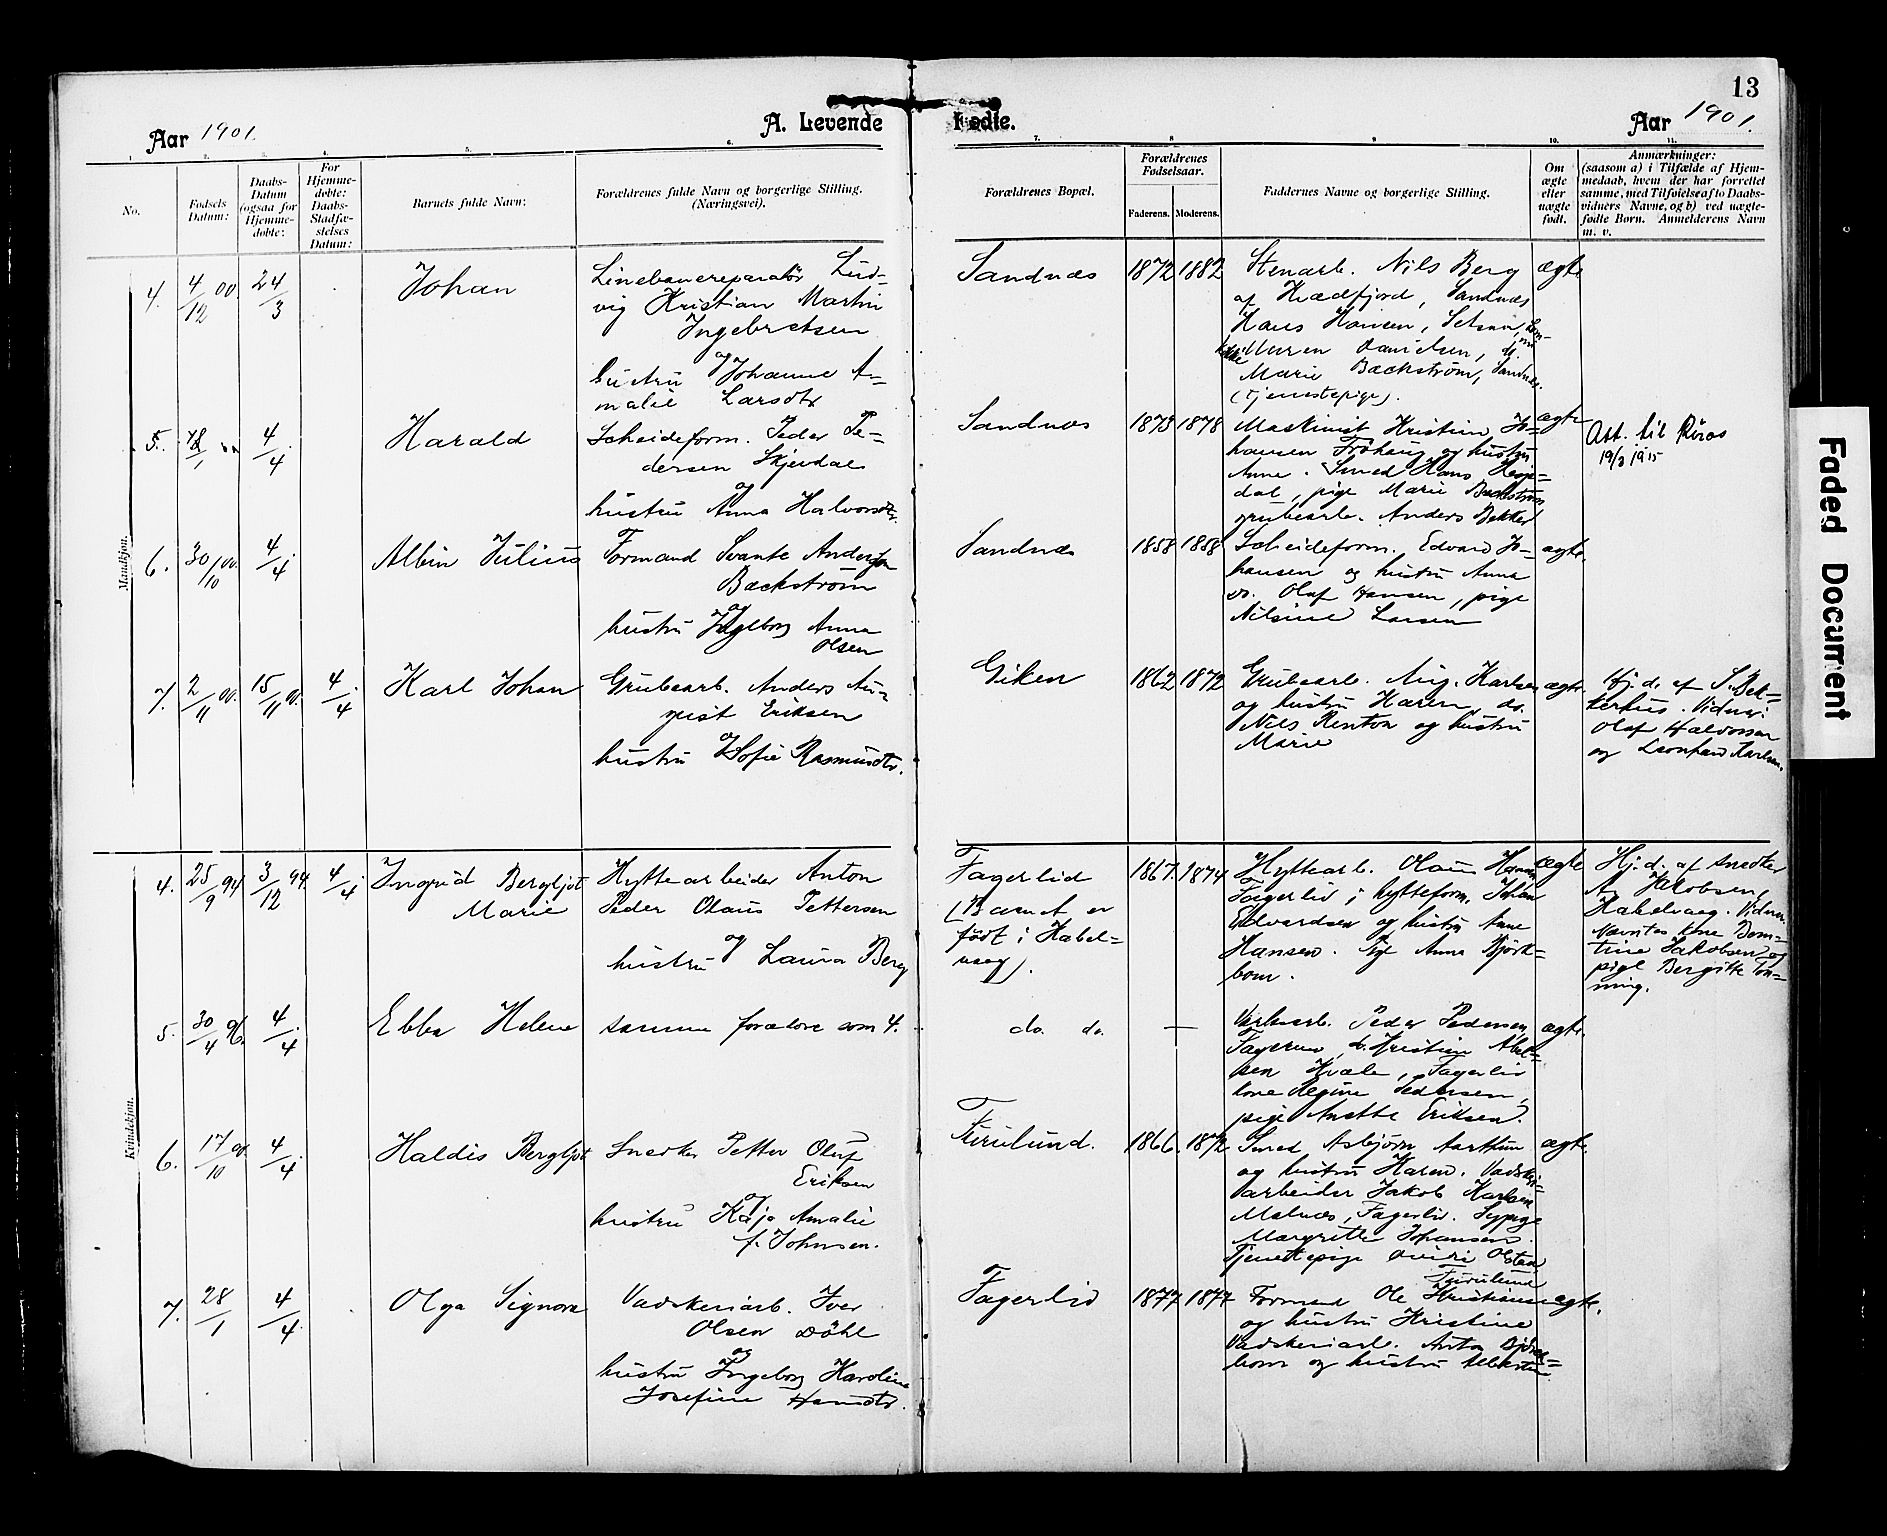 13
Aar 1901.
A. Levende
Fødte.
Aar 1901.
1. 2. 3. 4. 5. 6. 7. 8 9 10. 11.
No.
Fødsels Datum:
Daabs-Datum (ogsaa for Hjemmedøbte:
For Hjemmedøbte: Daabs-Stadfæstelses Datum:
Barnets fulde Navn:
Forældrenes fulde Navn og borgerlige Stilling.
(Næringsvei).
Forældrenes Bopæl.
Forældrenes Fødselsaar.
Faderens. Moderens.
Faddernes Navne og borgerlige Stilling.
Om ægte eller uægte født.
Anmærkninger:
(saasom a) i Tilfælde af Hjem-
medaab, hvem der har forrettet
samme, med Tilføielse af to Daabs-
vidners Navne, og b) ved uægte-
fødte Børn. Anmelderens Navn
m. v.
Mandkjøn.
4. 4/12 00. 24/3
Johan
Linebanereparatør Lud-
vig Kristian Martin
Ingebretsen
og
hustru Johanne A-
malie Larsdtr
Sandnæs
1872 1882
Stenarb. Nils Berg
af Kvædfjord, Sandnæs
Hans Hansen,
Maren Danielsen, ds.
Marie Backström, Sandnæs.
(tjenestepige).
ægte
5. 4/4
Harald
Scheideform. Peder Pe-
dersen Skjevdal
og
hustru Anna Halvorsdtr.
Sandnæs
1873 1878
Maskinist Kristian Jo-
hansen Frøhaug og hustru
Anne. Smed Hans Hegge-
dal, pige Marie Backström,
grubearb. Anders Bekker
ægte
Att. til Røros
19/3 1915
6. 30/10 00. 4/4.
Albin Julius
Formand Svante Andersson
Backström
og
hustru Ingeborg Anna
Olsen
Sandnæs
1858 1858
Scheideform. Edvard Jo-
hansen og hustru Anna
ds. Olaf Jensen, pige
Nilsine Larsen
ægte.
7. 2/11 00. 15/11 00. 4/4.
Karl Johan
Grubearb. Anders Au-
gust Eriksen
og
hustru Sofie Rasmusdtr.
Giken
1862 1872
Grubearb. Aug. Karlsen
og hustru Karen, ds.
Niels Renton og hustru
Marie
ægte.
Hj.d. af S. Bek-
kerhus. Vidner:
Olaf Halvorsen
og Leonhard Karlsen.
Kvindekjøn.
4. 25/9 94. 3/12 94. 4/4.
Ingrid Bergljot
Marie
Hyttearbeider Anton
Peder Olaus Pettersen
og
hustru Laura Berg
Fagerlid
(Barnet er
født i Kabel-
vaag).
1867. 1874
Hyttearb. Olaus Hansen
Fagerlid; hytteform. Johan
Edvardsen og hustru Anne
Hansen. Pige Anna Björk-
bom.
ægte
Hj.d. af snedker
A. Jakobsen,
Kabelvaag. Vidner:
Kone Bern-
tine Jakobsen og
pige Bergitte Ton-
ning.
5. 30/4 96. 4/4.
Ebba Helene
samme forældre som 4.
do. do.
—
Verksarb. Peder Pedersen
Fagerlid, ds. Kristian Abel-
sen Kvæle, Fagerlid
kone Regine Pedersen,
pige Anette Eriksen.
ægte.
6. 17/10 00. 4/4.
Haldis Bergljot
Snedker Petter Oluf
Eriksen
og
hustru Kaja Amalie
f. Johnsen.
Furulund.
1866. 1872
Smed Asbjørn Aarthun
og hustru Karen. Vadskeri-
arbeider Jakob Karlsen
Malnæs, Fagerlid. Sypige
Margrethe Johansen.
Tjenestepige Olstad
Furulund
ægte.
7. 28/1 4/4.
Olga Signora
Vadskeriarb. Iver
Olsen Döhl
og
hustru Ingeborg Karoline
Josefine Hansdtr.
Fagerlid
1877 1877
Formand Ole Kristiansen
og hustru Kristine
Vadskeriarb. Anton Björk-
bom og hustru Albertine.
ægte.
Faded Document